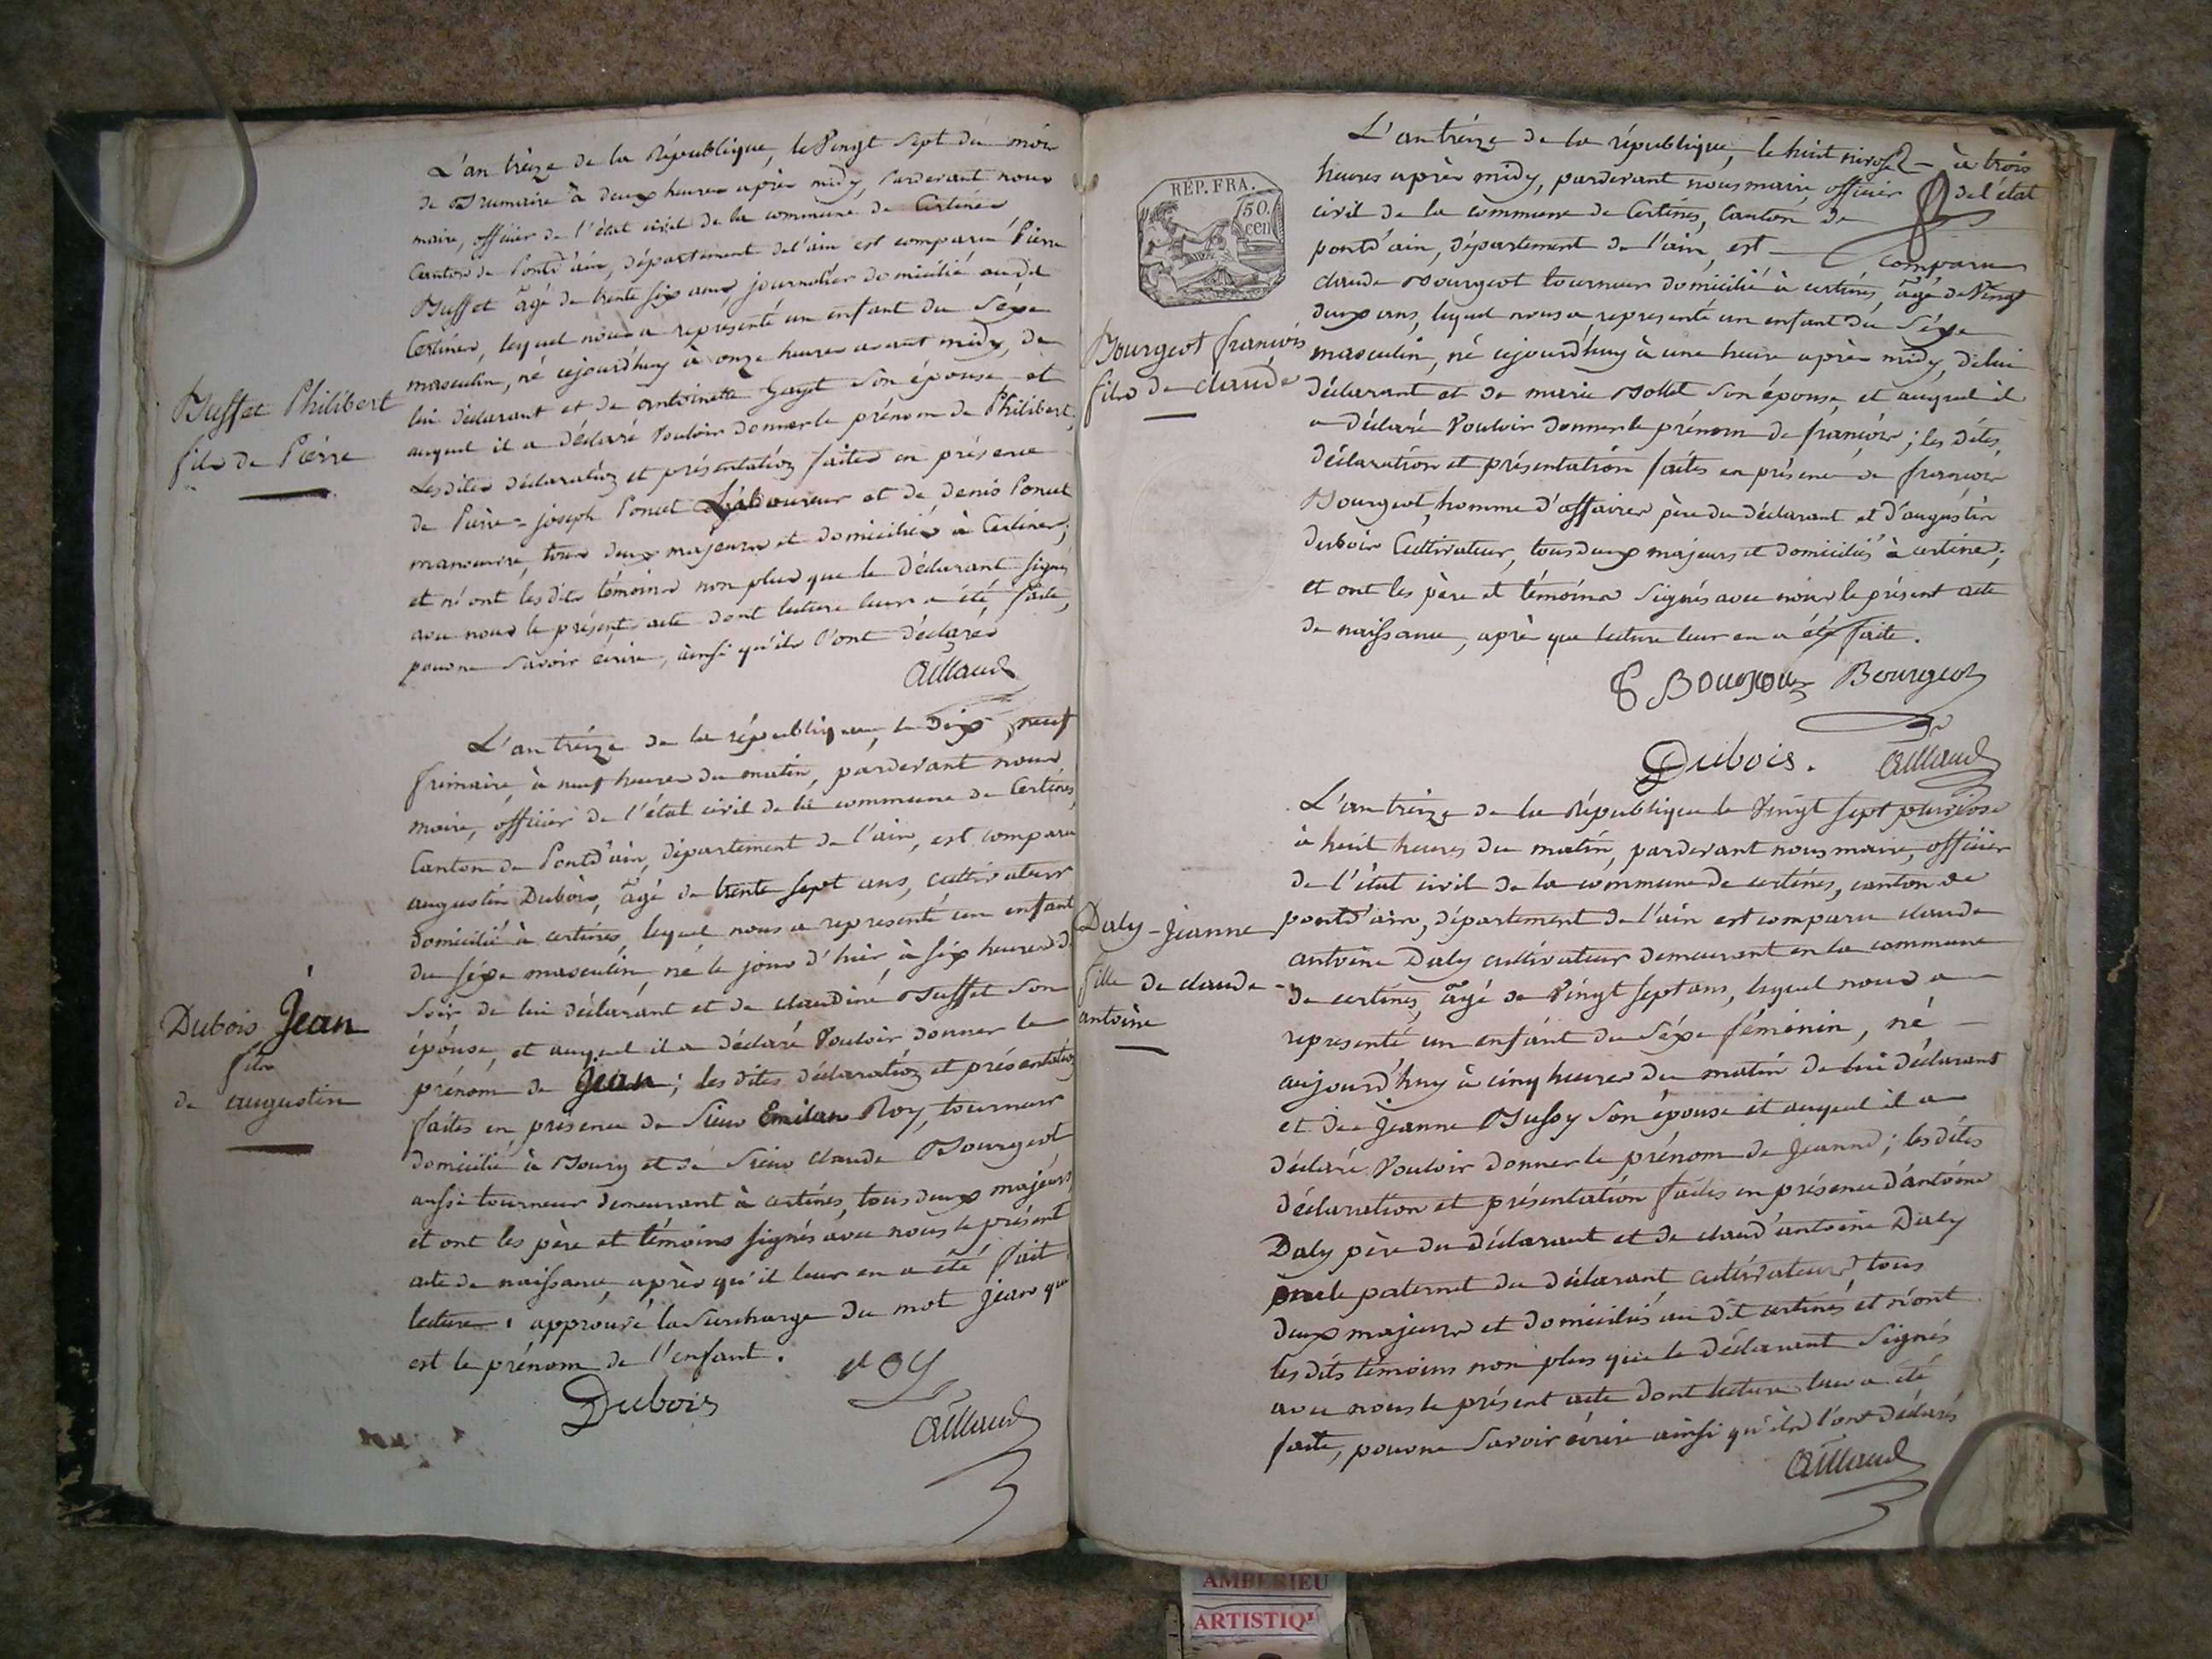 L'an treize de la République, le Vingt Sept du mois
de Brumaire à deux heures après midy, Pardevant nous
maire, officier de l'état civil de la commune de Certines
Canton de Pontd'ain, département de l'ain est comparu Pierre
Buffet âgé de trente six ans, journalier domicilié audit
Certines, lequel nous a représenté un enfant du Séxe
masculin, né cejourd'huy à onze heures avant midy, de
lui déclarant et de antoinette Gayt son épouse et
auquel il a déclaré Vouloir donner le prénom de Philibert,
Lesdites déclaration et présentation faites en présence
de Pierre-joseph Poncet Laboureur et de denis Poncet
manouvre, tous deux majeurs et domiciliés à Certines;
et n'ont les dits témoins non plus que le déclarant signé
avec nous le présent acte dont lecture leur a été faite,
pour ne savoir écrire, ainsi qu'ils l'ont déclarés
Aillaud
Buffet Philibert
fils de Pierre
L'an treize de la république, le Dix neuf
frimaire, à neuf heures du matin, pardevant nous
maire, officier de l'état civil de la commune de Certines,
Canton de Pontd'ain, département de l'ain, est comparu
augustin Dubois, âgé de trente sept ans, cultivateur
domicilié à certines, lequel nous a representé un enfant
du séxe masculin, né le jour d'hier, à six heures du
Soir de lui déclarant et de claudine Buffet son
épouse, et auquel il a déclaré Vouloir donner le
prénom de Jean; les dites déclaration et présentation
faites en présence de Sieur Emilan Roy, tourneur
domicilié à Bourg et de Sieur claude Bourgeot
aussi tourneur demeurant à certines, tous deux majeurs
et ont les père et témoins signés avec nous le présent
acte de naissance, après qu'il leur en a été fait
lecture. approuvé la surcharge du mot jean qui
est le prénom de l'enfant.
Roy
Dubois
Aillaud
Dubois Jean
fils
de augustin
L'an treize de la république, le huit nivose - à trois
heures après midy, pardevant nous maire, officier de l'état
civil de la commune de Certines, Canton de
pontd'ain, département de l'ain, est - comparu
claude Bourgeot tourneur domicilié à certines, âgé de Vingt
deux ans, lequel nous a representé un enfant du Séxe
masculin, né cejourd'huy à une heure après midy, de lui
déclarant et de marie Bollet son épouse, et auquel il
a déclaré Vouloir donner le prénom de françois; les dites,
déclaration et présentation faites en présence de françois
Bourgeot, homme d'affaires père du déclarant et d'augustin
dubois Cultivateur, tous deux majeurs et domiciliés à certines;
et ont les père et témoins signés avec nous le présent acte
de naissance, après que lecture leur en a été faite.
Bourgeot
Dubois.
Aillaud
REP. FRA.
50.
cen
Bourgeot françois
fils de claude
L'an treize de la République le Vingt sept pluviose
à huit heures du matin, pardevant nous maire, officier
de l'état civil de la commune de certines, canton de
pontd'ain, département de l'ain est comparu claude
antoine Daly cultivateur demeurant en la commune
de certines, âgé de Vingt sept ans, lequel nous a
representé un enfant du Séxe féminin, né
aujourd'huy à cinq heures du matin de lui déclarant
et de Jeanne Bussy son épouse et auquel il a
déclaré Vouloir donner le prénom de Jeanne; les dites
déclaration et présentation faites en présence d'antoine
Daly père du déclarant et de claud'antoine Daly
oncle paternel du déclarant, cultivateurs, tous
deux majeurs et domiciliés au dit certines, et n'ont
les dits témoins non plus que le déclarant signés
avec nous le présent acte dont lecture leur a été
faite, pour ne savoir écrire ainsi qu'ils l'ont déclarés
Aillaud
Daly-Jeanne
fille de claude-
antoine
AMBERIEU
ARTISTIQ